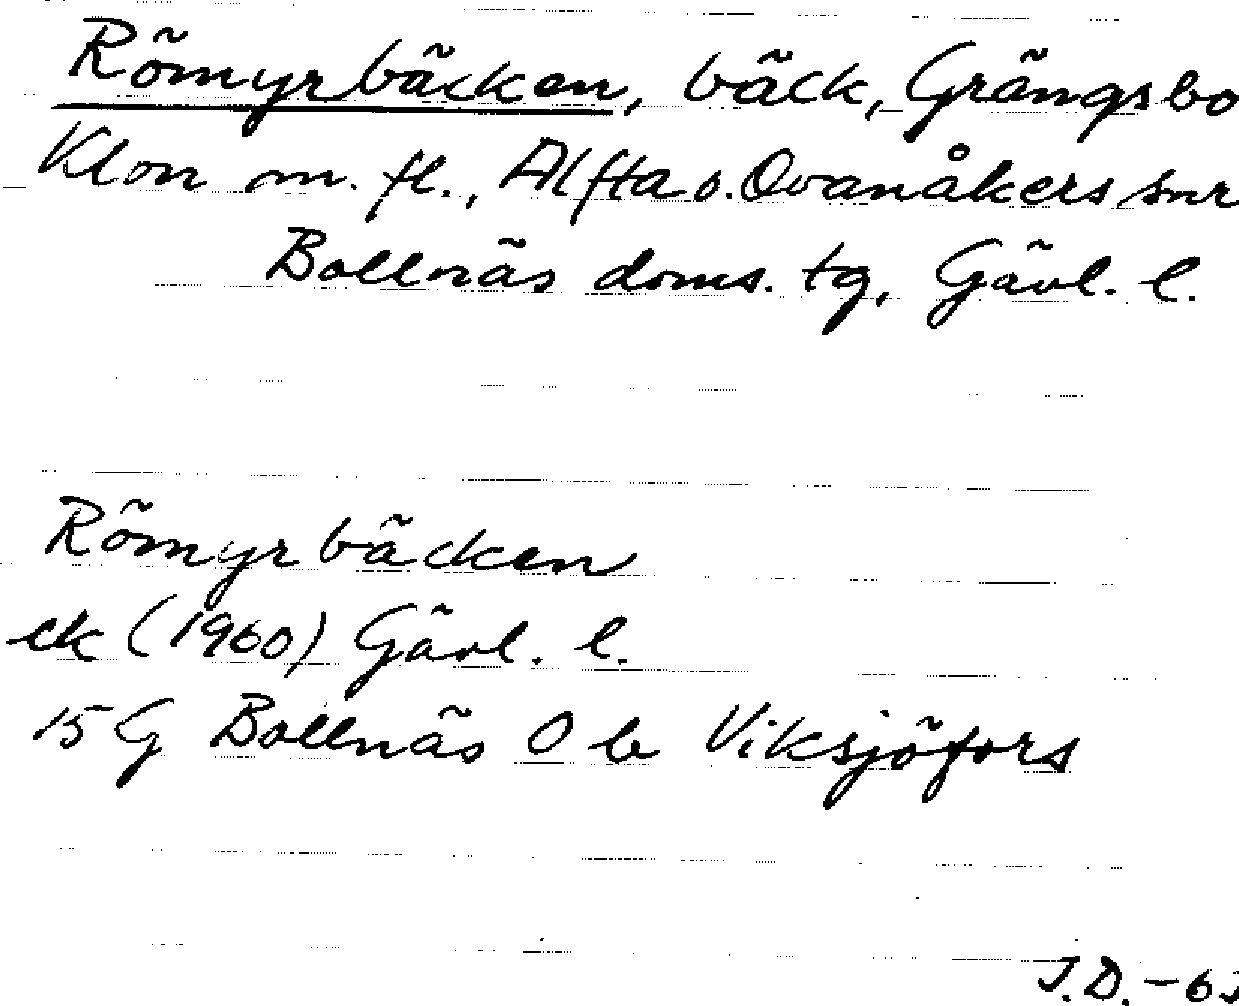 Römyrbäcken, bäck, Grängsbo
Klon m. fl., Alfta o. Ovanåkers snr
Bollnäs doms. tg, Gävl. l.
Römyrbäcken
ek (1960) Gävl. l.
15 G Bollnäs O b Viksjöfors
J.D. -63